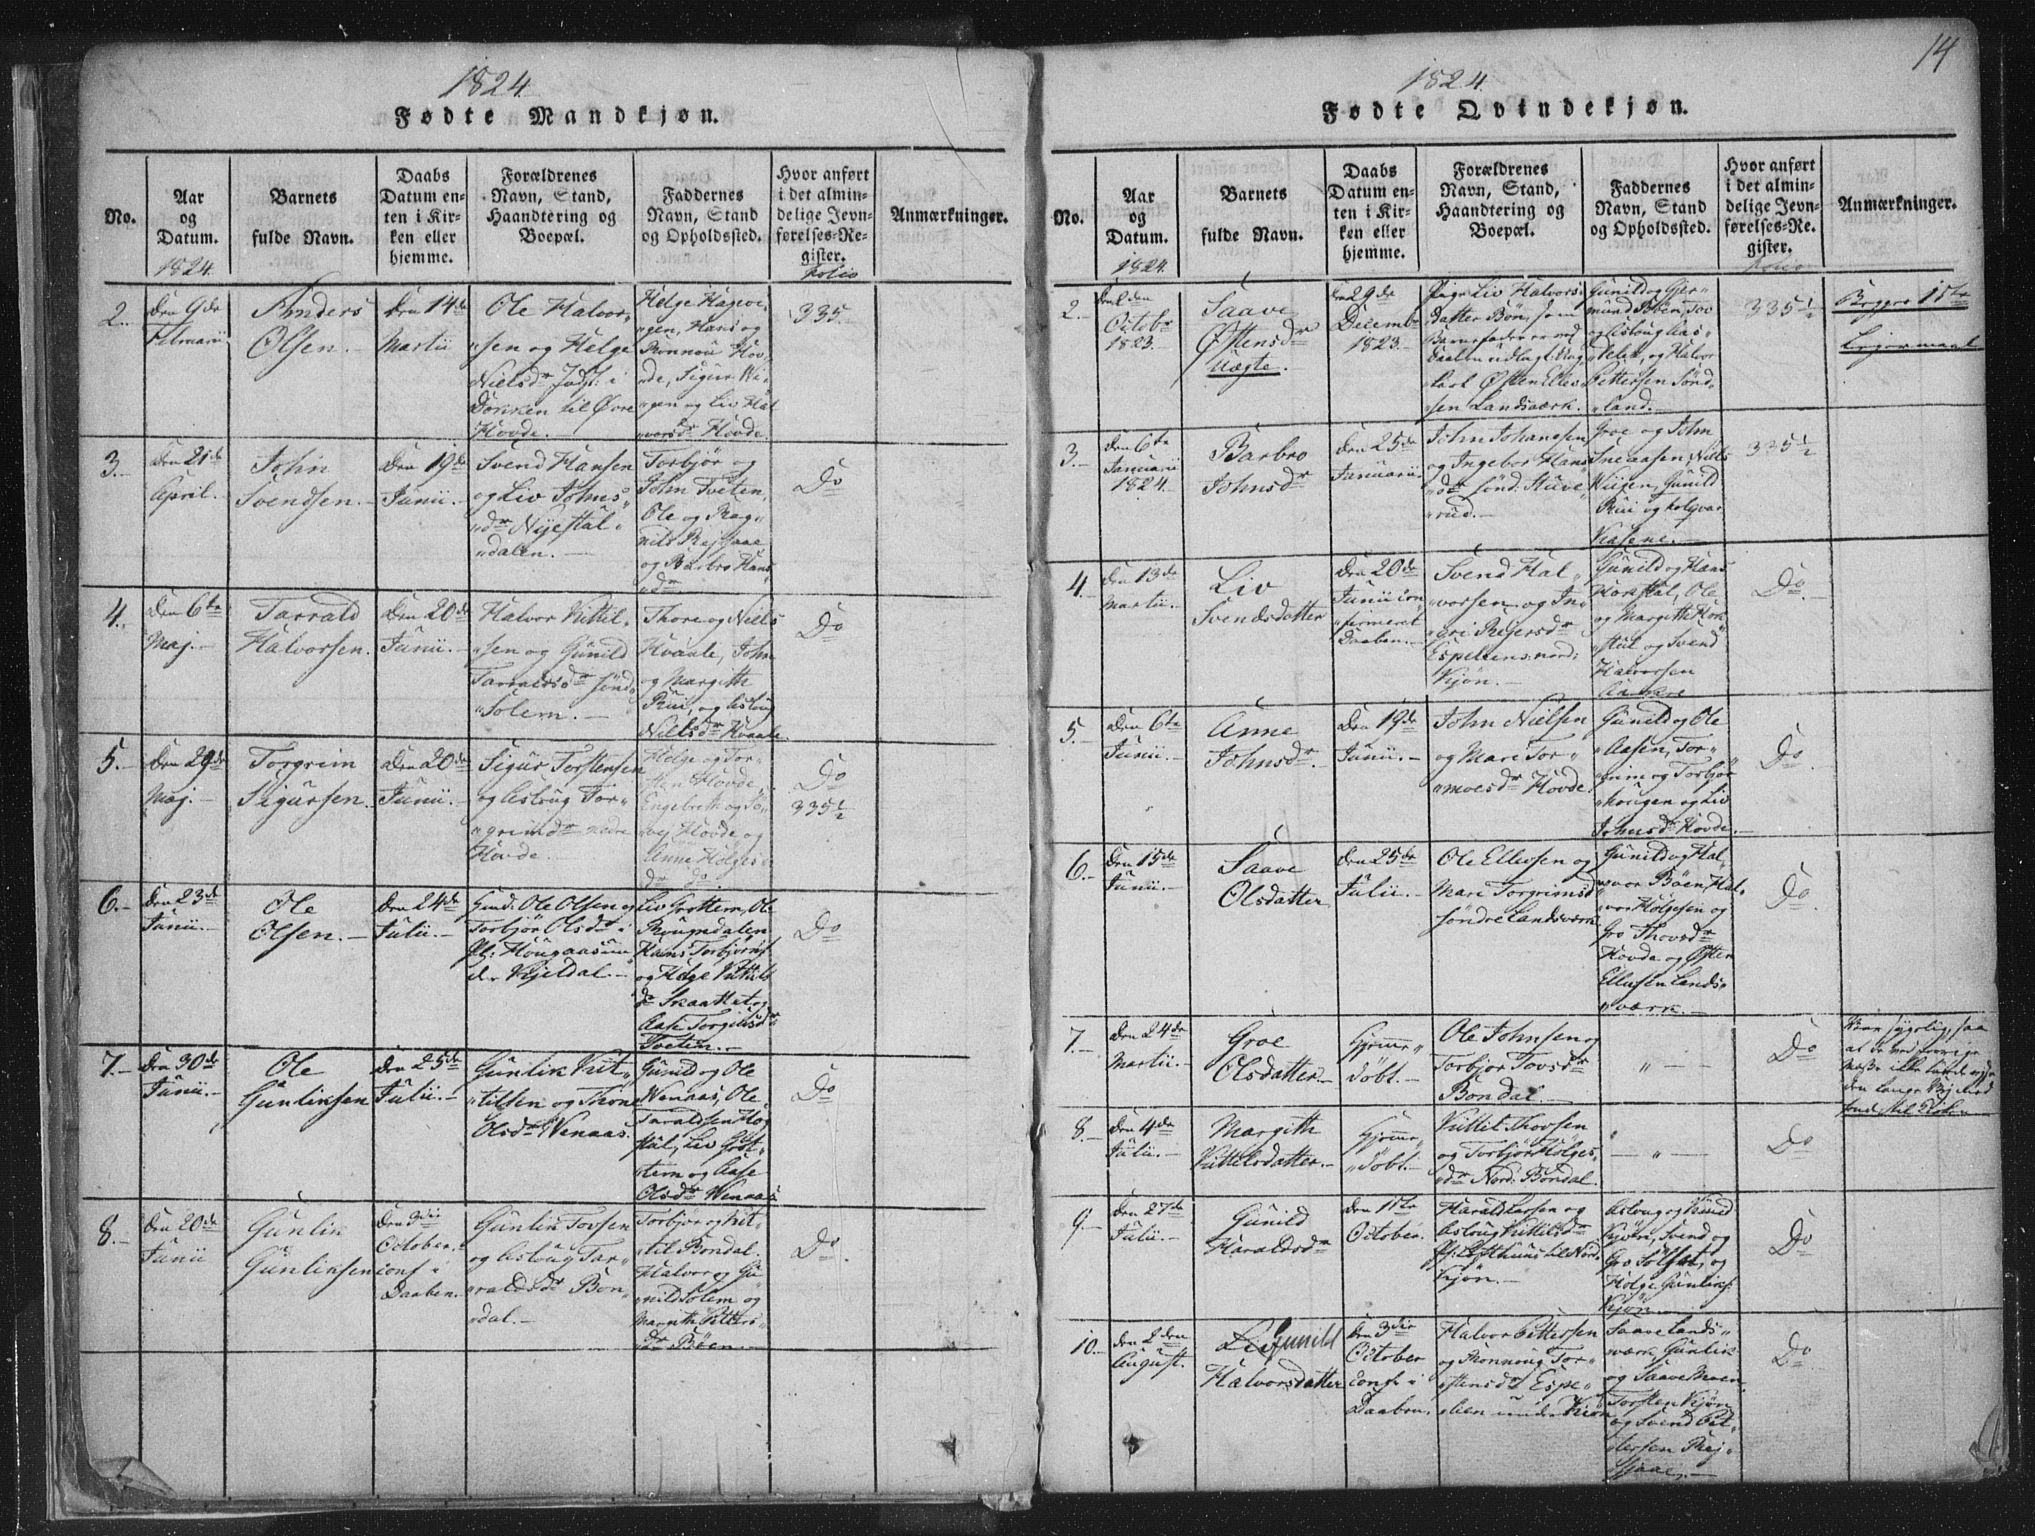 1824.
Fødte Mandkjøn.
No.
Aar
og
Datum.
1824.
Barnets
fulde Navn.
Daabs
Datum en-
ten i Kir-
ken eller
hjemme.
Forældrenes
Navn, Stand,
Haandtering og
Boepæl.
Faddernes
Navn, Stand
og Opholdssted.
Hvor anført
i det almin-
delige Jevn-
førelses-Re-
gister.
Folio
Anmærkninger.
2.
Den 9de
Februarii
Anders
Olsen.
Den 14de
Martii
Ole Halvor„
„sen og Helge
Nielsdr
Dokken til Øvre
Hovde.
Helge
Hans og
Hov„
„de, Sigur
og Liv Hal
„vorsdr Hovde.
335.
3.
Den 21de
April.
John
Svendsen.
Den 19de
Junii.
Svend Hansen
og Liv Johns„
„dr
„dalen.
Torbjør og
John Tveten,
Ole og Rag„
og Barbro Hans
„dr
Do
4.
Den 6te
Maj.
Tarrald
Halvorsen.
Den 20de
Junii.
Halvor Kittil„
„sen og Gunild
Tarraldsdr sønd„
„Solem.
Thore og Niels
Hvaale, John
og Margith
Rui, og Aslaug
Nielsdr Hvaale.
Do
5.
Den 29de
Maj.
Torgrim
Sigursen.
Den 20de
Junii.
Sigur Torstensen
og Aslaug Tor„
„grimdr nedre
Hovde.
Helge og Tor„
„sten Hovde,
Engebreth og
Hovde og
Anne Helges„
dr do.
Do
335½
6.
Den 23de
Junii.
Ole
Olsen.
Den 24de
Julii.
Ole Olsen og
Torbjør Olsdr i
Kjeldal.
Liv Grottem, Ole
og Helge Kittils
dr Skaattet og
Aase Torgilsdr
Tveten.
Do
7.
Den 30de
Junii.
Ole
Gunliksen
Den 25de
Julii.
Gunlik Kit„
„tilsen og Thone
Olsdr Wenaas.
Gunild og Ole
Wenaas, Ole
Taraldsen
Liv Grot„
„tem og Aase
Olsdr Wenaas.
Do
8.
Den 20de
Junii
Gunlik
Gunliksen
Den 3die
October.
conf i
Daaben.
Gunlik Tovsen
og Aslaug Tar„
„raldsdr Bon„
„dal.
Torbjør og Kit„
„til Bondal.
Halvor og Gu
„nild Solem og
Margith Petters„
„dr Bøen.
Do
14
1824.
Fødte Qvindekjøn.
No.
Aar
og
Datum.
1824.
Barnets
fulde Navn.
Daabs
Datum en-
ten i Kir-
ken eller
hjemme.
Forældrenes
Navn, Stand,
Haandtering og
Boepæl.
Faddernes
Navn, Stand
og Opholdssted.
Hvor anført
i det almin-
delige Jevn-
førelses-Re-
gister.
Folio
Anmærkninger.
2.
Den 2den
Octobr
1823.
Saave
Østensdr
Uægte.
Den 29de
Decembr
1823.
Pige Liv Halvors„
datter Bøn, som
Barnefader er ved
Daaben udlagt Ung„
karl Østen Ellev„
„sen Landsværk.
Gunild og Gjer„
mund Bøen, Tov
og Aslaug
og Halvor
Pettersen Sønd„
„land.
335½
Begges 1ste
Lejermaal
3.
Den 6te
Januarii
1824.
Barbro
Johnsdr
Den 25de
Januarii.
John Johansen
og Ingebor Hans
„dr sønd. Stuve
„rud.
Groe og John
Sneaasen, Niels
Gunild
Rui og
335½
4.
Den 13de
Martii.
Liv
Svendsdatter
Den 20de
Junii con„
„firmeret
Daaben.
Svend Hal„
„vorsen og In„
Espelien nord:
Kjøn.
Gunild og Hans
Ole
og Margith
og Svend
Halvorsen
Do
5.
Den 6te
Junii.
Anne
Johnsdr.
Den 19de
Junii.
John Nielsen
og Mari Tor„
„moesdr Hovde.
Gunild og Ole
Aasen, Tor„
„grim og Torbjør
Hougen og Liv
Johnsdr Hovde.
Do
6.
Den 15de
Junii.
Saave
Olsdatter
Den 25de
Julii.
Ole Ellevsen og
Mari Torgrimsd
søndre Landsværk
Gunild og Hal„
„vor Bøen, Hal„
„vor Helgesen og
Gro Thovsdr
Hovde og Østen
Ellefsen Lands„
„værk.
Do
7.
Den 24de
Martii.
Groe
Olsdatter.
Hjemme
„døbt.
Ole Johnsen og
Torbjør Tovsdr
Bondal.
„
Do
8.
Den 4de
Julii.
Margith
Kittelsdatter.
Hjemme
„døbt.
Kittil Thovsen
og Torbjør Helges„
„dr Nord. Bondal.
„
Do
9.
Den 27de
Julii.
Gunild
Haraldsdr
Den 11te
October.
Harald Larsen og
Aslaug Kittilsdr
til Nord
Kjøn.
Aslaug og Knud
Svend og
Gro og
Helge Gunliks
Kjøn.
Do
10.
Den 2den
August.
Gunild
Halvorsdatter
Den 3die
October
Conf. i
Daaben.
Halvor Pettersen
og Rønnoug Tor„
„stensdr Espe„
„lien under Kjøn
Saave Lands„
værk, Gunlik
og Saave Moen
Torsten Kjøn
og Svend Pet„
„tersen Rej„
Do